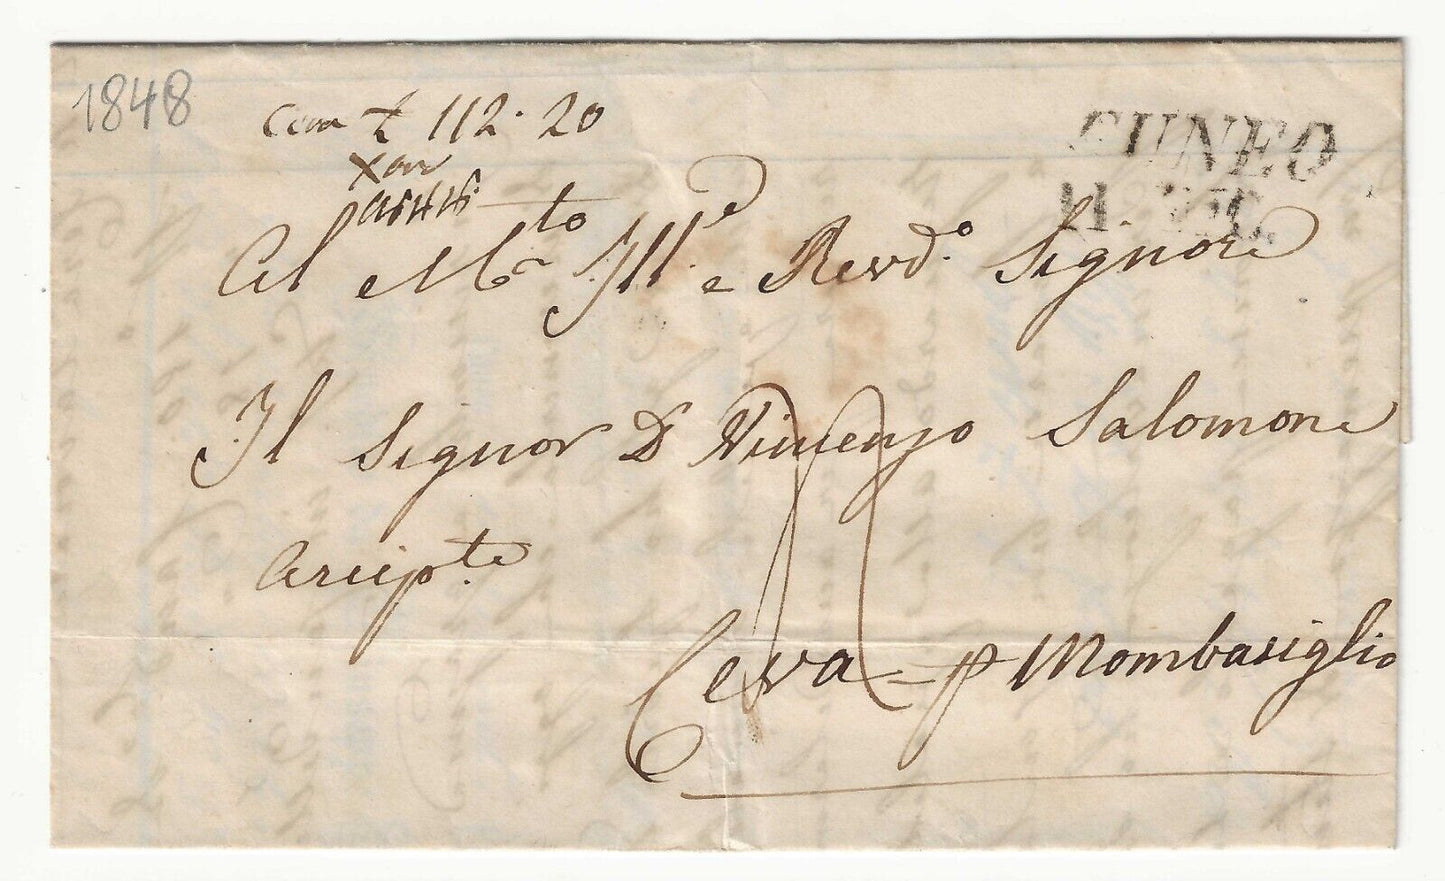 1848
Con £ 112. 20
CUNEO
11. DIC.
Al M.to Ill.e e Revd.o Signore
Il Signor D Vincenzo Salomone
Arcipt.e
Ceva = p Mombasiglio